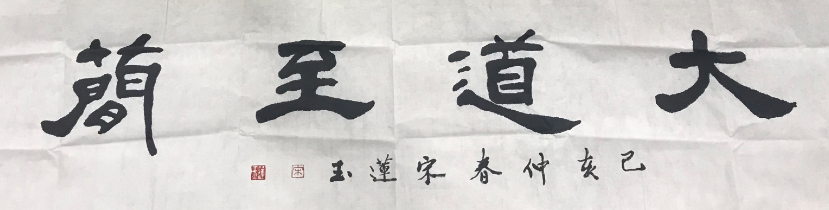 大道至簡
己亥仲春宋蓮玉
宋